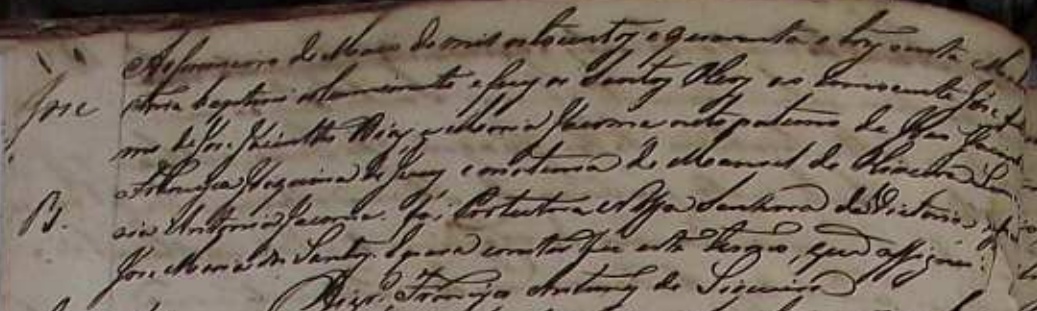 José
Ao primeiro de Março de mil oitocentos e quarenta e tres nesta Ma
triz baptisei solemnemente e puz os Santos Oleos ao innocente José f
mo de José Jacintho Roiz, e Maria Jacoma neto paterno de João
Francisca Joaquina de Jesus e materno de Manoel de Oliveira
B.
cia Antonia Jacoma. foi Protectora a Nossa Senhora da Victoria
José Maria dos Santos. E para constar fiz este termo, que assignei.
Francisco Antunes de Siqueira